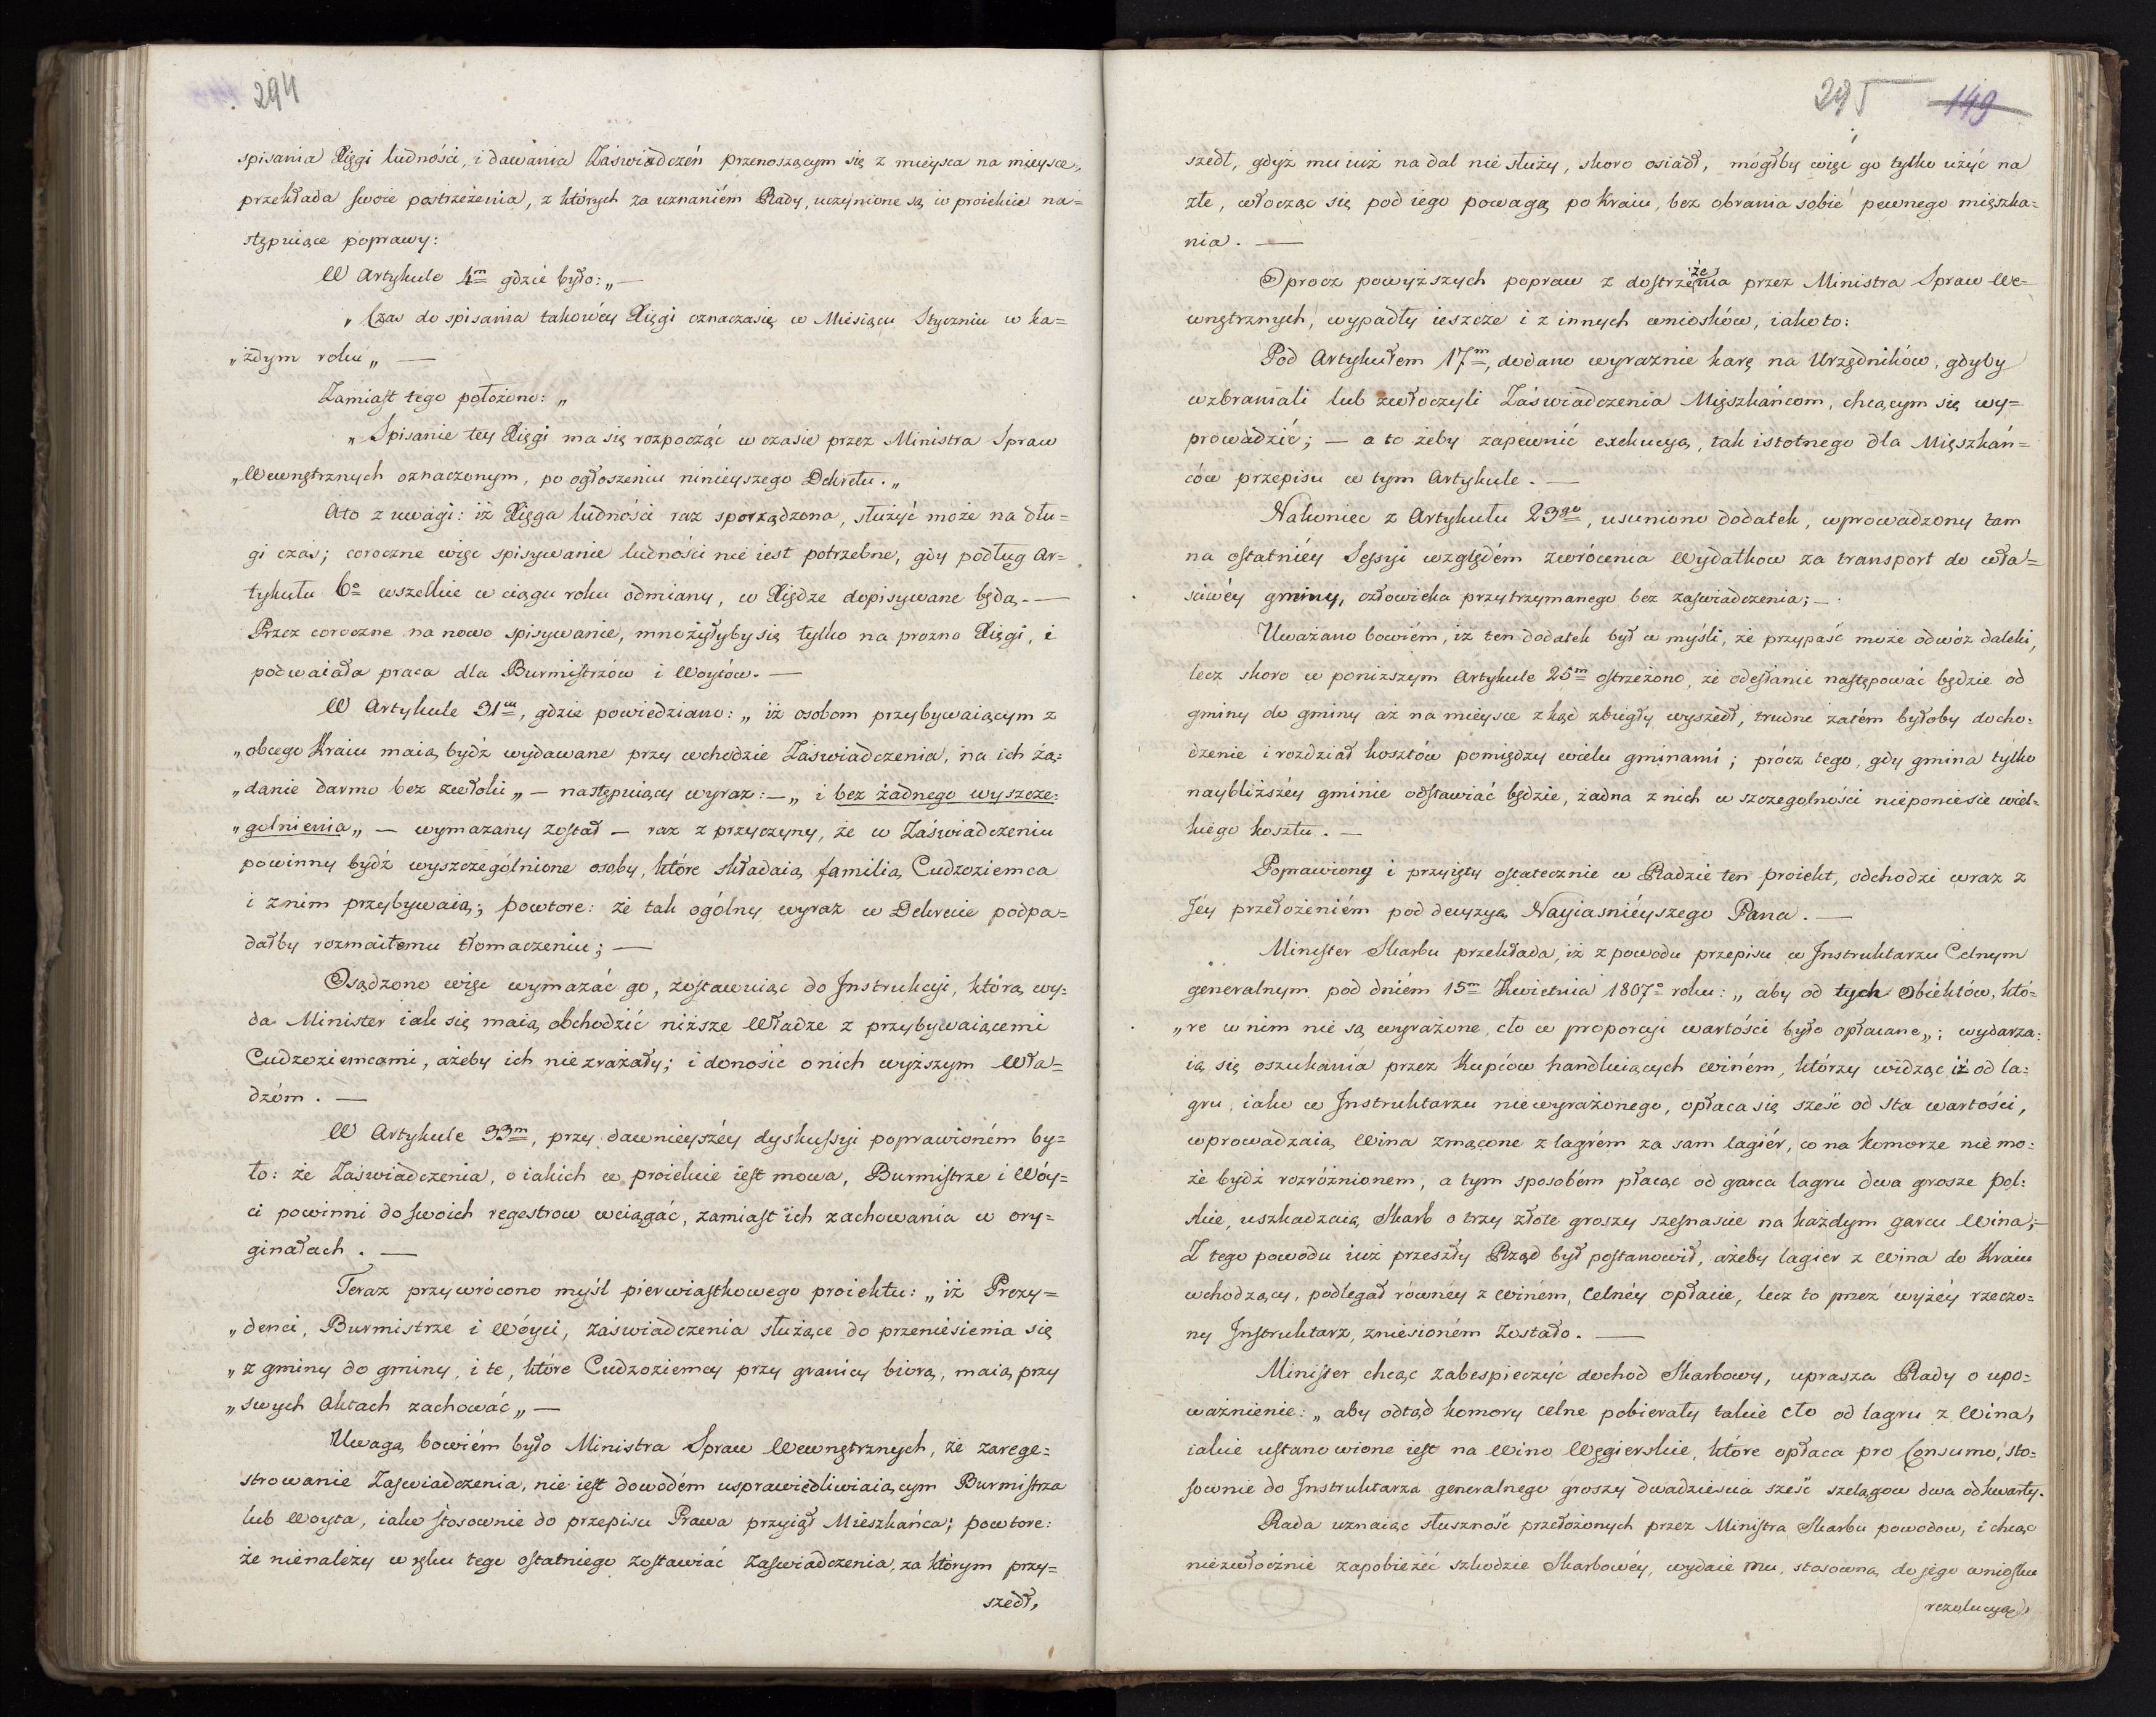 294
spisania Xięgi ludności, i dawania Zaświadczeń przenoszącym się z mieysca na mieysce,
przekłada swoie postrzeżenia, z których za uznaniém Rady, uczynione są w proiekcie na=
stępuiące poprawy:
W Artykule 4m gdzie było: „ —
„ Czas do spisania takowéy Xięgi oznacza się w Miesiącu Styczniu w ka=
„żdym roku „ —
Zamiast tego położono: „
„ Spisanie tey Xięgi ma się rozpocząć w czasie przez Ministra Spraw
„Wewnętrznych oznaczonym, po ogłoszeniu ninieyszego Dekretu. „
Ato z uwagi: iż Xięga ludności raz sporządzona, służyć może na dłu=
gi czas; coroczne więc spisywanie ludności nie iest potrzebne, gdy podług Ar=
tykułu 6o wszelkie w ciągu roku odmiany, w Xiędze dopisywane będą. —
Przez coroczne na nowo spisywanie, mnożyłyby się tylko na prozno Xięgi, i
podwaiała praca dla Burmistrzów i Woytów. —
W Artykule 31m, gdzie powiedziano: „ iż osobom przybywaiącym z
„obcego Kraiu maią bydź wydawane przy wchodzie Zaświadczenia, na ich żą=
„danie darmo bez zwłoki „ — następuiący wyraz: — „ i bez żadnego wyszcze=
„golnienia „ — wymazany został — raz z przyczyny, że w Zaświadczeniu
powinny bydź wyszczególnione osoby, które składaią familią Cudzoziemca
i z nim przybywaią; powtore: że tak ogólny wyraz w Dekrecie podpa=
dałby rozmaitemu tłomaczeniu; —
Osądzono więc wymazać go, zostawuiąc do Instrukcyi, którą wy=
da Minister iak się maią obchodzić niższe Władze z przybywaiącemi
Cudzoziemcami, ażeby ich niezrażały; i donosić o nich wyższym Wła=
dzóm. —
W Artykule 33m, przy dawnieyszéy dyskussyi poprawioném by=
ło: że Zaświadczenia, o iakich w proiekcie iest mowa, Burmistrze i Wóy=
ci powinni do swoich regestrow wciągać, zamiast ich zachowania w ory=
ginałach. —
Teraz przywrócono myśl pierwiastkowego proiektu: „ iż Prezy=
„denci, Burmistrze i Wóyci, zaświadczenia służące do przeniesienia się
„z gminy do gminy, i te, które Cudzoziemcy przy granicy biorą, maią przy
„swych Aktach zachować „ —
Uwagą bowiém było Ministra Spraw Wewnętrznych, że zarege=
strowanie Zaswiadczenia, nie iest dowodém usprawiedliwiaiącym Burmistrza
lub Woyta, iako stosownie do przepisu Prawa przyiął Mieszkańca; powtore:
że nienależy w ręku tego ostatniego zostawiać Zaswiadczenia, za którym przy=
szedł,
295 149
szedł, gdyż mu iuż na dal nie służy, skoro osiadł, mógłby więc go tylko użyć na
złe, włocząc się pod iego powagą po Kraiu, bez obrania sobie pewnego miészka=
nia. —
Oprocz powyższych popraw z dostrzeżenia przez Ministra Spraw We=
wnętrznych, wypadły ieszcze i z innych wniosków, iako to:
Pod Artykułem 17m, dodano wyraznie karę na Urzędników, gdyby
wzbraniali lub zwłoczyli Zaświadczenia Mięszkańcom, chcącym się wy=
prowadzić; — a to żeby zapewnić exekucyą, tak istotnego dla Mięszkań=
ców przepisu w tym Artykule. —
Nakoniec z Artykułu 23go, usuniono dodatek, wprowadzony tam
na ostatniéy Sessyi względém zwrócenia Wydatkow za transport do wła=
sciwéy gminy, człowieka przytrzymanego bez zaswiadczenia; —
Uważano bowiém, iż ten dodatek był w myśli, że przypaść może odwóz daleki,
lecz skoro w poniższym Artykule 25m ostrzeżono, że odesłanie następować będzie od
gminy do gminy aż na mieysce zkąd zbiegły wyszedł, trudne zatém byłoby docho=
dzenie i rozdział kosztów pomiędzy wielu gminami; prócz tego, gdy gmina tylko
naybliższéy gminie odstawiać będzie, żadna z nich w szczegolności nieponiesie wiel=
kiego kosztu. —
Poprawiony i przyięty ostatecznie w Radzie ten proiekt, odchodzi wraz z
Jéy przełożeniém pod decyzyą Nayiasniéyszego Pana. —
Minister Skarbu przekłada, iż z powodu przepisu w Instruktarzu Celnym
generalnym pod dniém 15m Kwietnia 1807o roku: „ aby od tych Obiektów, któ=
„re w nim nie są wyrażone, cło w proporcyi wartości było opłacane „; wydarza=
ią się oszukania przez Kupców handluiących winém, którzy widząc iż od la=
gru, iako w Instruktarzu niewyrażonego, opłaca się sześć od sta wartości,
wprowadzaią Wina zmącone z lagrém za sam lagiér, co na Komorze nie mo=
że bydź rozróżnionem, a tym sposobém płacąc od garca lagru dwa grosze pol=
skie, uszkadzaią Skarb o trzy złote groszy szesnaście na każdym garcu Wina; —
Z tego powodu iuż przeszły Rząd był postanowił, ażeby lagier z Wina do Kraiu
wchodzący, podlegał równéy z winém, Celnéy opłacie, lecz to przez wyżéy rzeczo=
ny Instruktarz, zniesioném zostało. —
Minister chcąc zabespieczyć dochod Skarbowy, uprasza Rady o upo=
ważnienie: „ aby odtąd komory celne pobierały takie cło od lagru z Wina,
iakie ustanowione iest na Wino Węgierskie, które opłaca pro Consumo, sto=
sownie do Instruktarza generalnego groszy dwadzieścia sześć szelągow dwa od kwarty.
Rada uznaiąc słuszność przełożonych przez Ministra Skarbu powodow, i chcąc
niezwłocznie zapobieżeć szkodzie Skarbowéy, wydaie mu, stosowną do jego wniosku
rezolucyą.